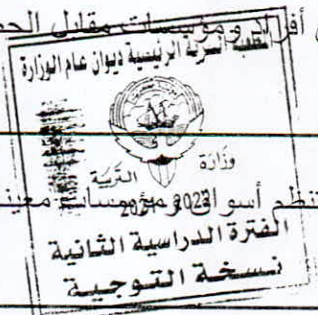 أفراد ومؤسسات مقابل الحص
لجنة السرية الرئيسية ديوان عام الوزارة
وزارة
التربية
تنظم أسواق مؤسسات معينة
الفترة الدراسية الثانية
نسخة التوجية